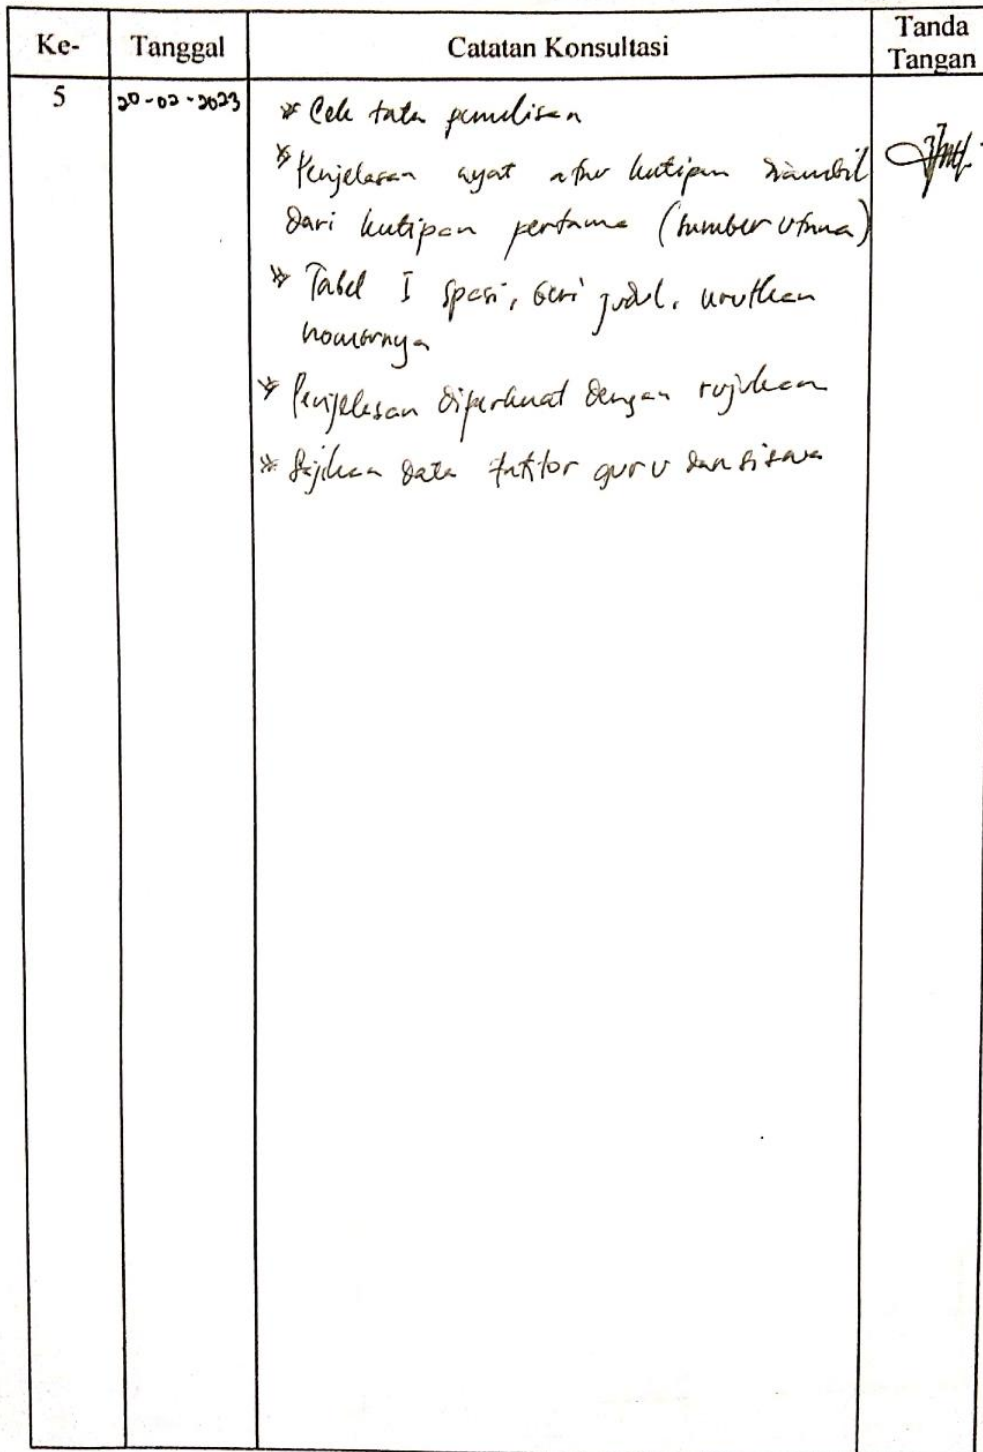 Ke- Tanggal Catatan Konsultasi Tanda Tangan
5 20-02-2023
* Cek tata penulisan
* Penjelasan ayat atau kutipan diambil
dari kutipan pertama (sumber utama)
* Tabel 1 spasi, beri judul, urutkan
nomornya
* Penjelasan diperkuat dengan rujukan
* Sajikan data faktor guru dan siswa